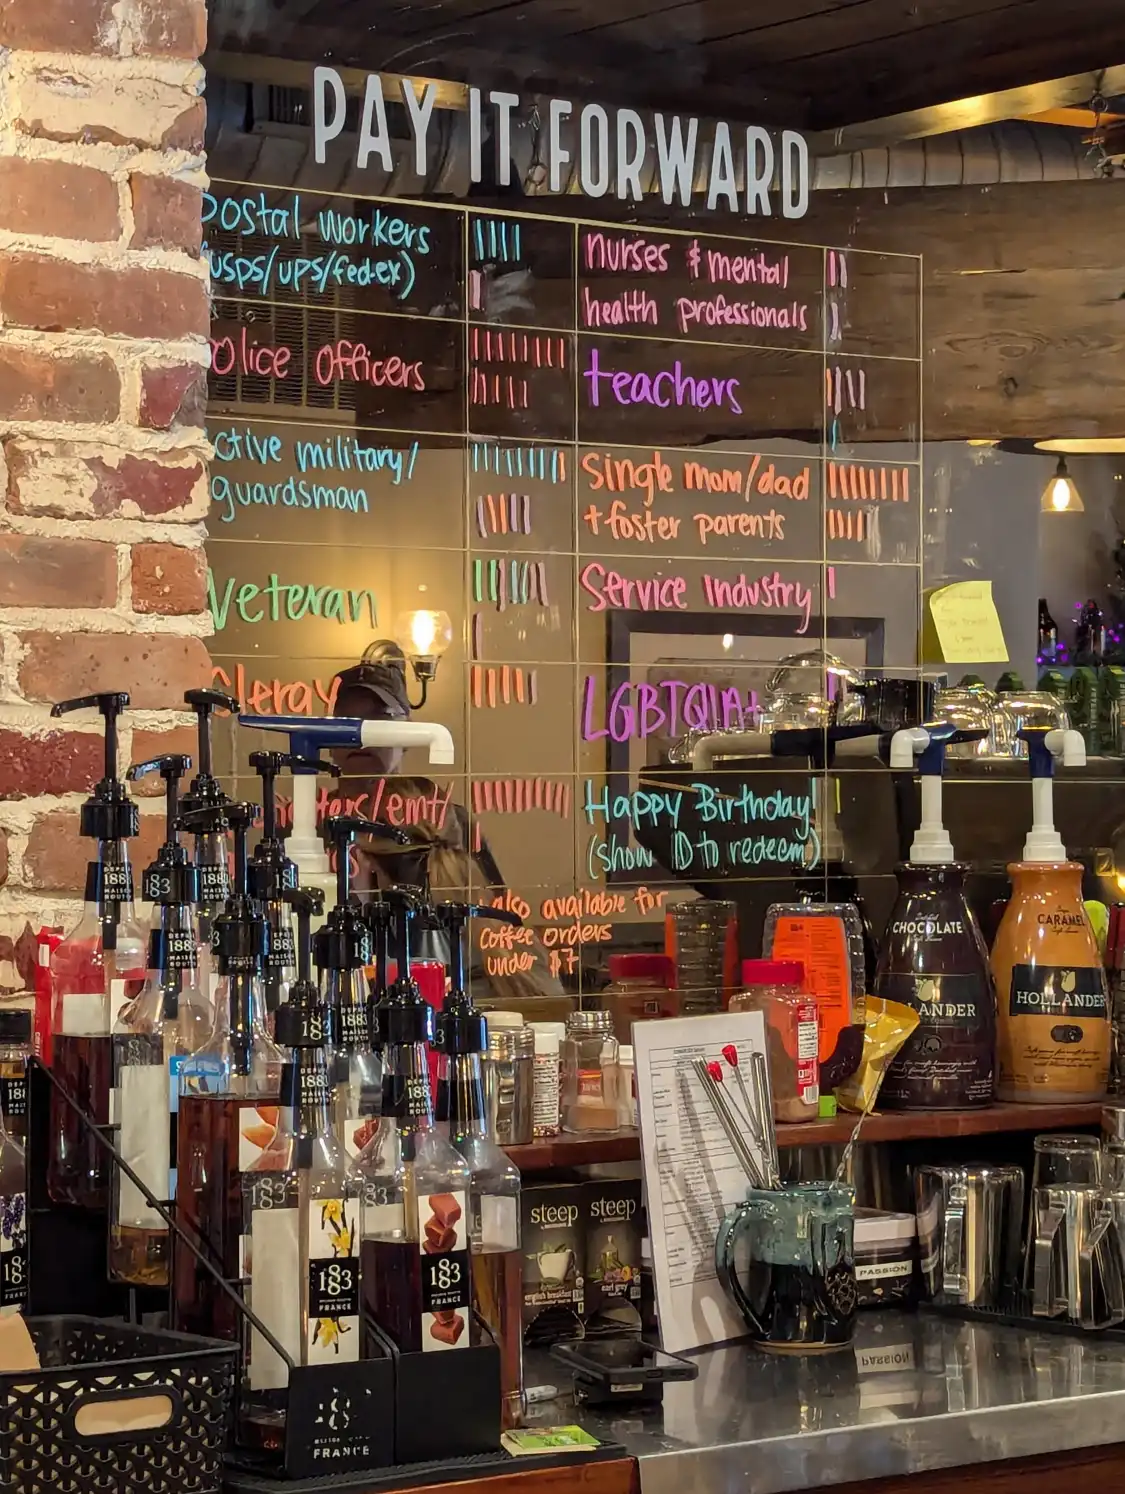 PAY IT FORWARD
postal workers
(usps/ups/fedex)
nurses & mental
health professionals
police officers
teachers
active military/
guardsman
single mom/dad
+ foster parents
Veteran
Service Industry
Clergy
LGBTQIA+
Happy Birthday!
(show ID to redeem)
/emt/
also available for
coffee orders
under $7
CHOCOLATE
CARAMEL
HOLLANDER
DEPUIS
1883
MAISON
ROUTIN
steep
steep
english breakfast
earl grey
PASSION
1883
FRANCE
1883
FRANCE
FRANCE